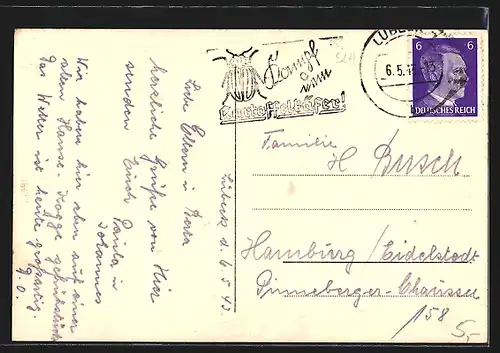 Lübeck d. 6.5.43
Liebe Eltern u Berta
herzliche Grüße von Hier
senden Euch
Paula u
Johannes
Wir haben hier eben auf einer
alten Hanse-Kogge gefrühstückt
Das Wetter ist heute großartig.
D.O.
Kampf
dem
Kartoffelkäfer!
LÜBECK
6.5.43
6 6
DEUTSCHES REICH
Familie
H Busch
Hamburg/Eidelstedt
Pinneberger-Chaussee
158
5,-